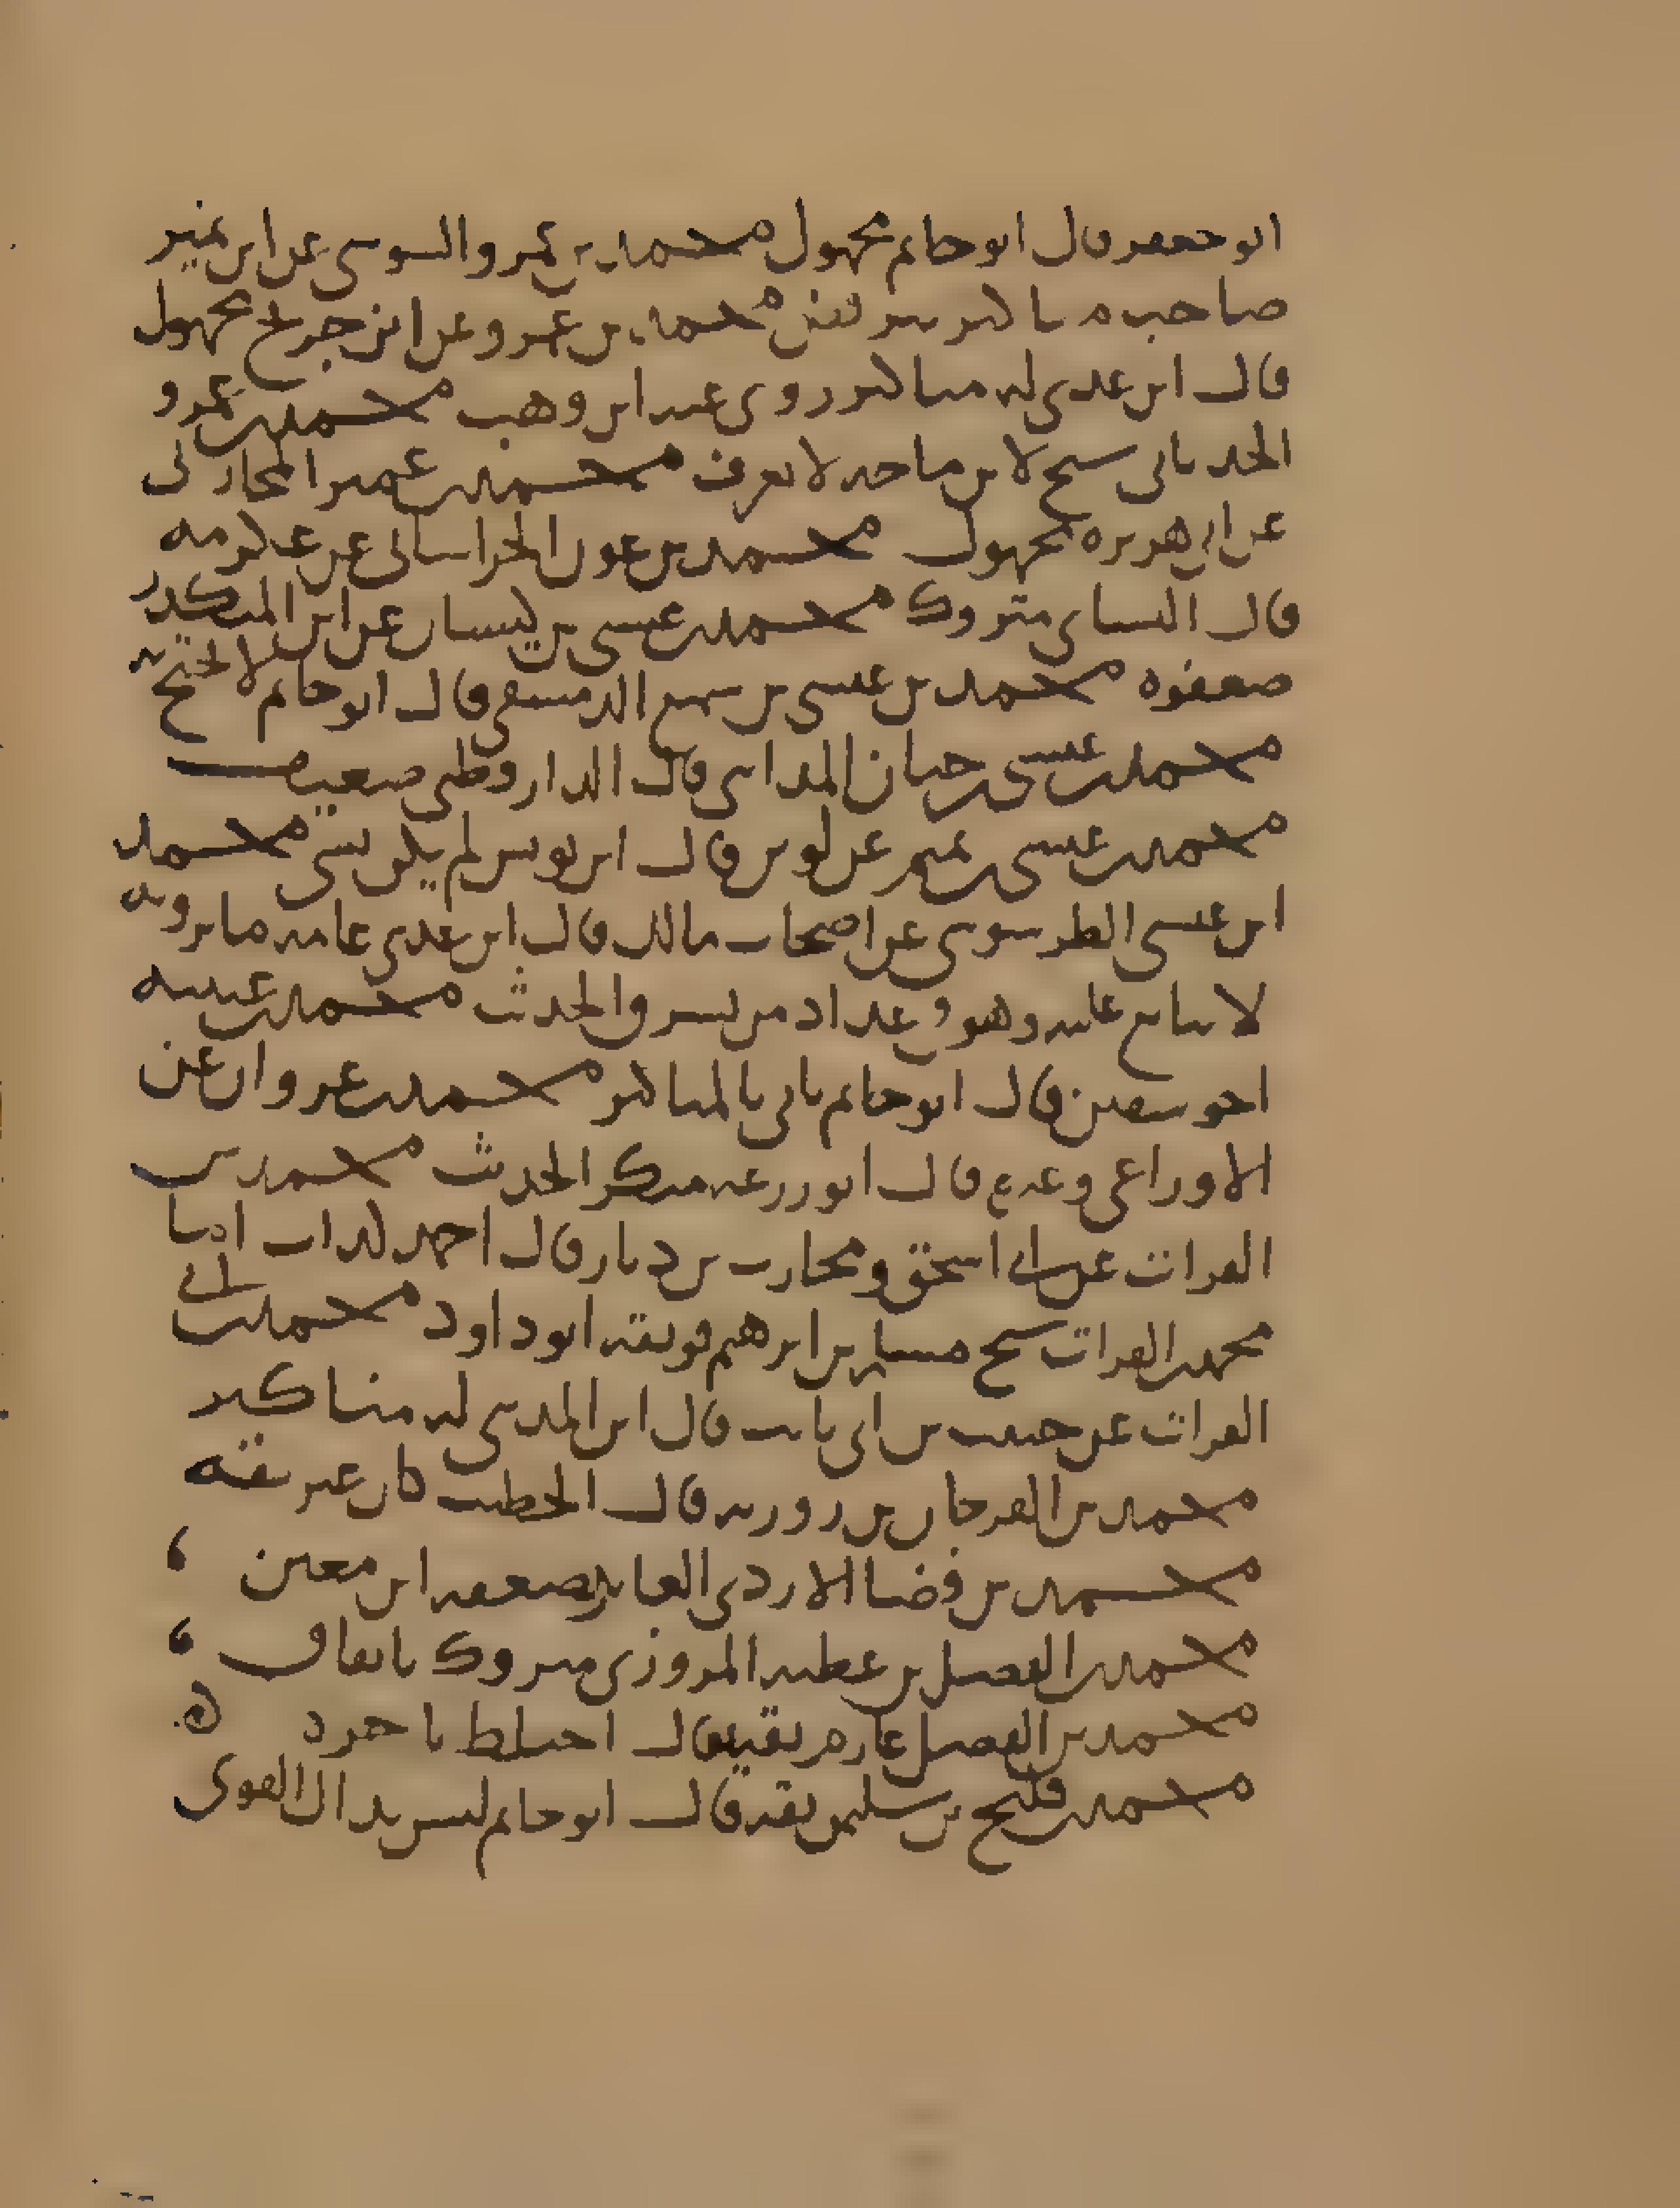 ابو جعفر قال ابو حاتم مجهول محمد بن عمرو السوسي عن ابن نمير
صاحب مناكير محمد بن عمرو عن ابن جريج مجهول
قال ابن عدي له مناكير روى عنه ابن وهب محمد بن عمرو
الحدثاني شيخ لابن ماجه لا يعرف محمد بن عمير المحاربي
عن ابي هريره مجهول محمد بن عون الخراساني عن عكرمه
قال النسائي متروك محمد بن عيسى بن كيسان عن ابن المنكدر
ضعفوه محمد بن عيسى بن سميع الدمشقي قال ابو حاتم لا يحتج به
محمد بن عيسى بن حيان المدايني قال الدارقطني ضعيف
محمد بن عيسى بن تميم عن لوين قال ابن يونس لم يكن بشي محمد
ابن عيسى الطرسوسي عن اصحاب مالك قال ابن عدي عامه ما يرويه
لا يتابع عليه وهو في عداد من يسرق الحديث محمد بن عيينه
اخو سفين قال ابو حاتم ياتي بالمناكير محمد بن غزوان عن
الاوزاعي وغيره قال ابو زرعه منكر الحديث محمد بن
الفرات عن ابي اسحق ومحارب بن دثار قال احمد كذاب اما
محمد بن الفرات شيخ مسلم بن ابرهيم فوثقه ابو داود محمد بن ابي
الفرات عن حبيب بن ابي ثابت قال ابن المديني له مناكير
محمد بن الفرخان بن روزبه قال الخطيب كان غير ثقه
محمد بن فضا الازدي العابر ضعفه ابن معين
محمد بن الفضل بن عطيه المروزي متروك باتفاق
محمد بن الفضل عارم ثقه يقال اختلط باخره
محمد بن فليح بن سليمن ثقه قال ابو حاتم ليس بذاك القوي